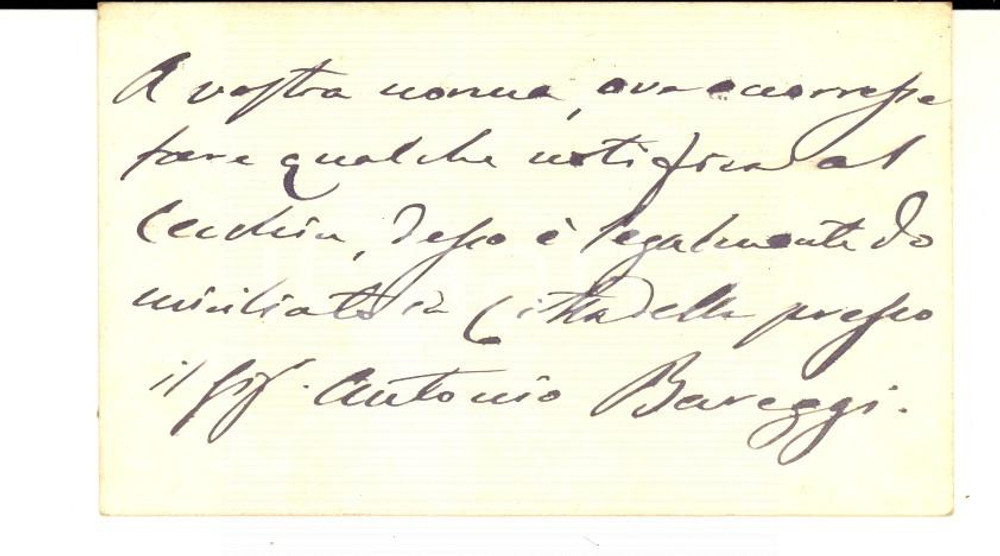 A vostra norma, ove occorresse
fare qualche notifica al
Cecchin, desso è legalmente do
miciliato in Cittadella presso
il Sig. Antonio Bareggi.